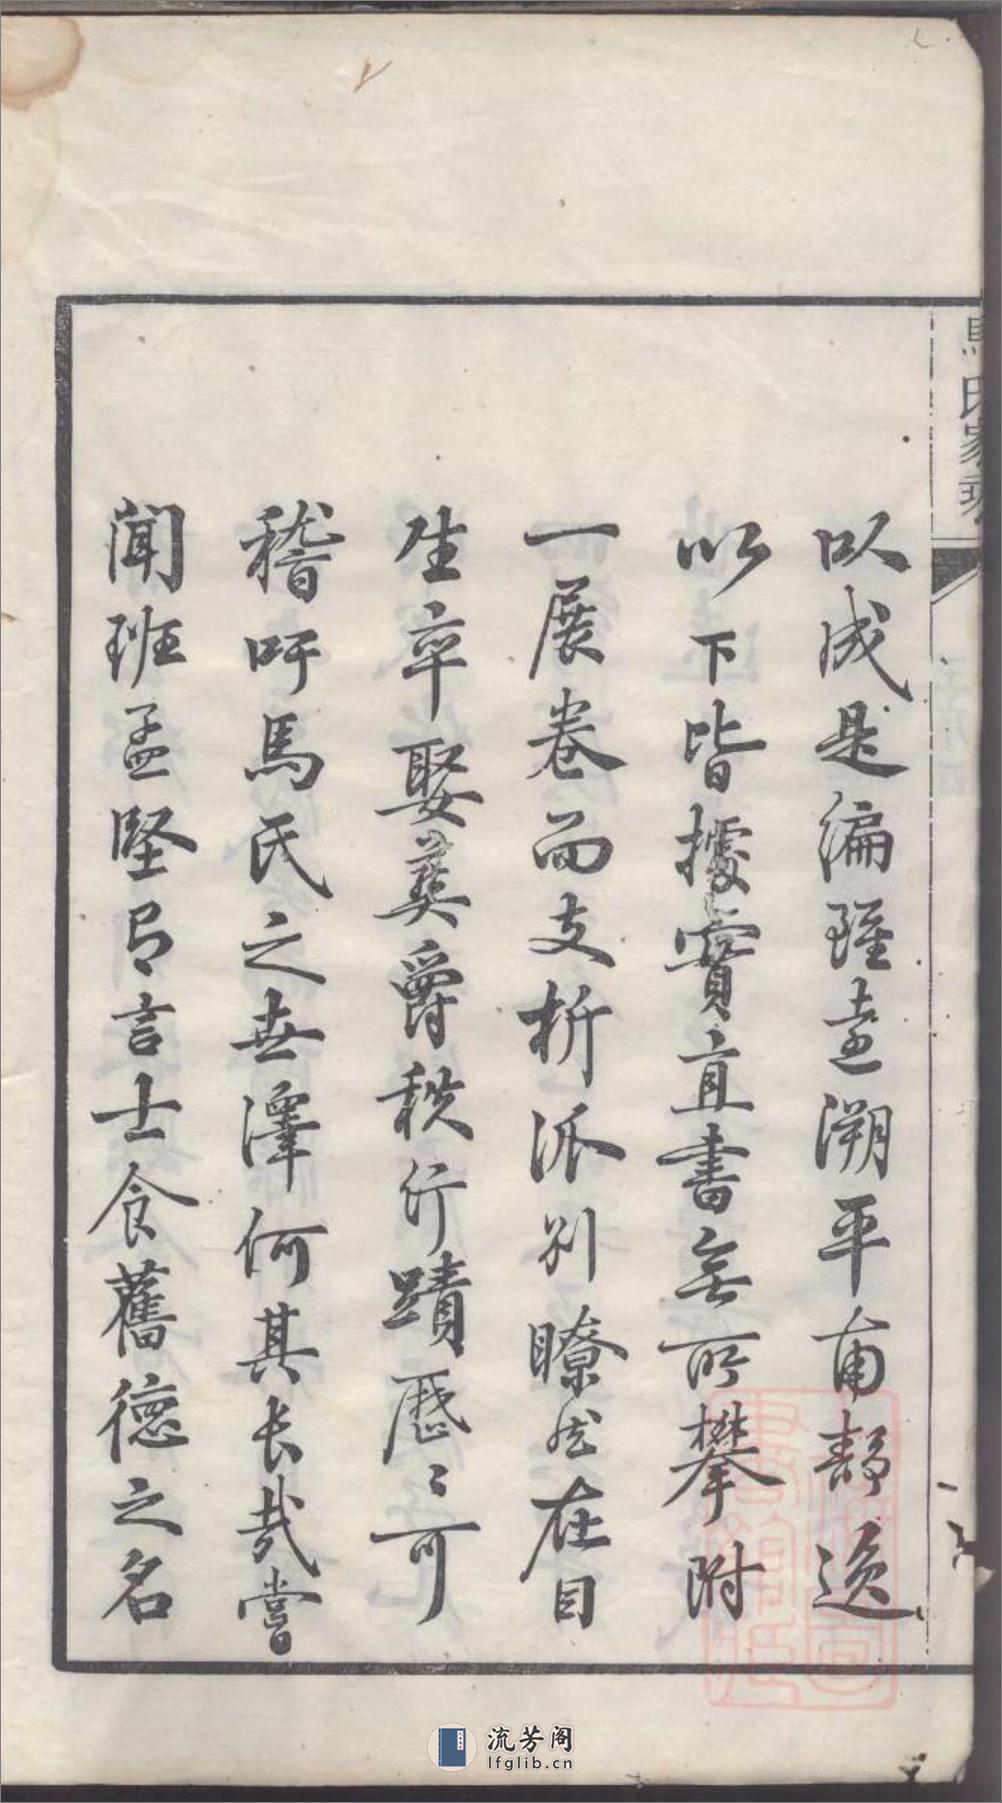 馬氏家乘
以成是編雖遠溯平甫靜逸
以下皆據實直書無所攀附
一展卷而支析派別瞭然在目
生卒娶葬爵秩行蹟歷〻可
稽吁馬氏之世澤何其長哉嘗
聞班孟堅有言士食舊德之名
流芳阁
lfglib.cn